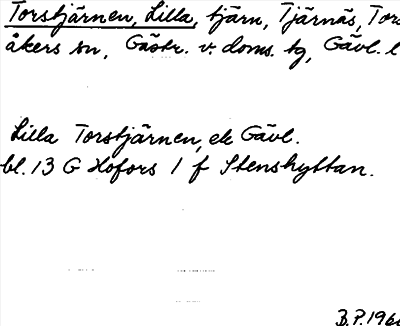 Torstjärnen, Lilla, tjärn, Tjärnäs, Tors
åkers sn, Gästr. v. doms. tg, Gävl. l
Lilla Torstjärnen, ek Gävl.
bl. 13 G Hofors 1 f Stenshyttan.
B.P. 196